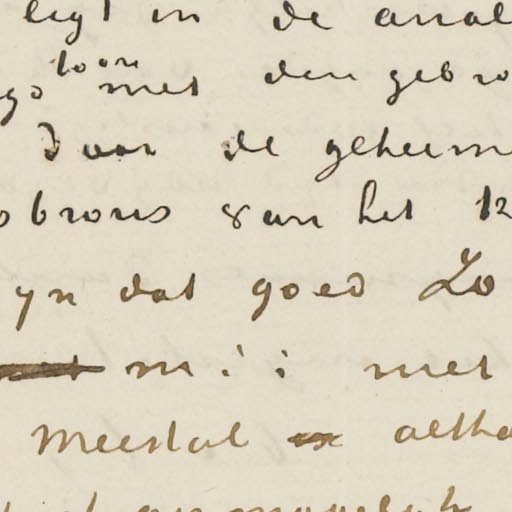 ligt in de anal
toon
met den gebro
Daar de geheim
brons van het k
yn dat goed Zo
m i : met
Meestal en altha